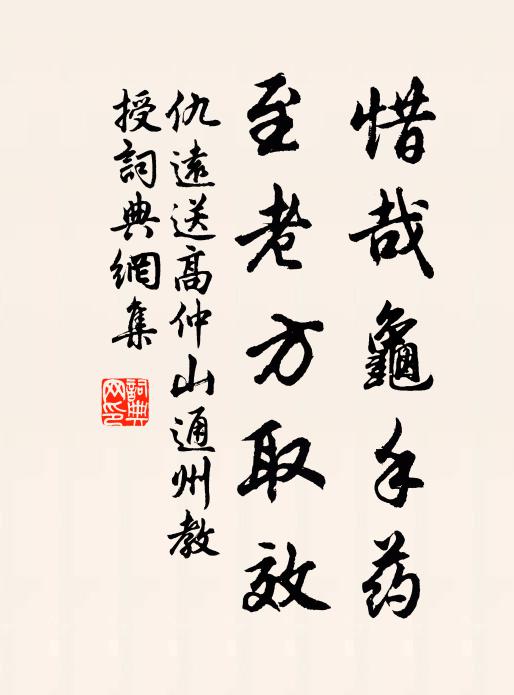 惜哉龜手药
至老方取效
仇遠送高仲山通州教
授詞典網集
詞典网印